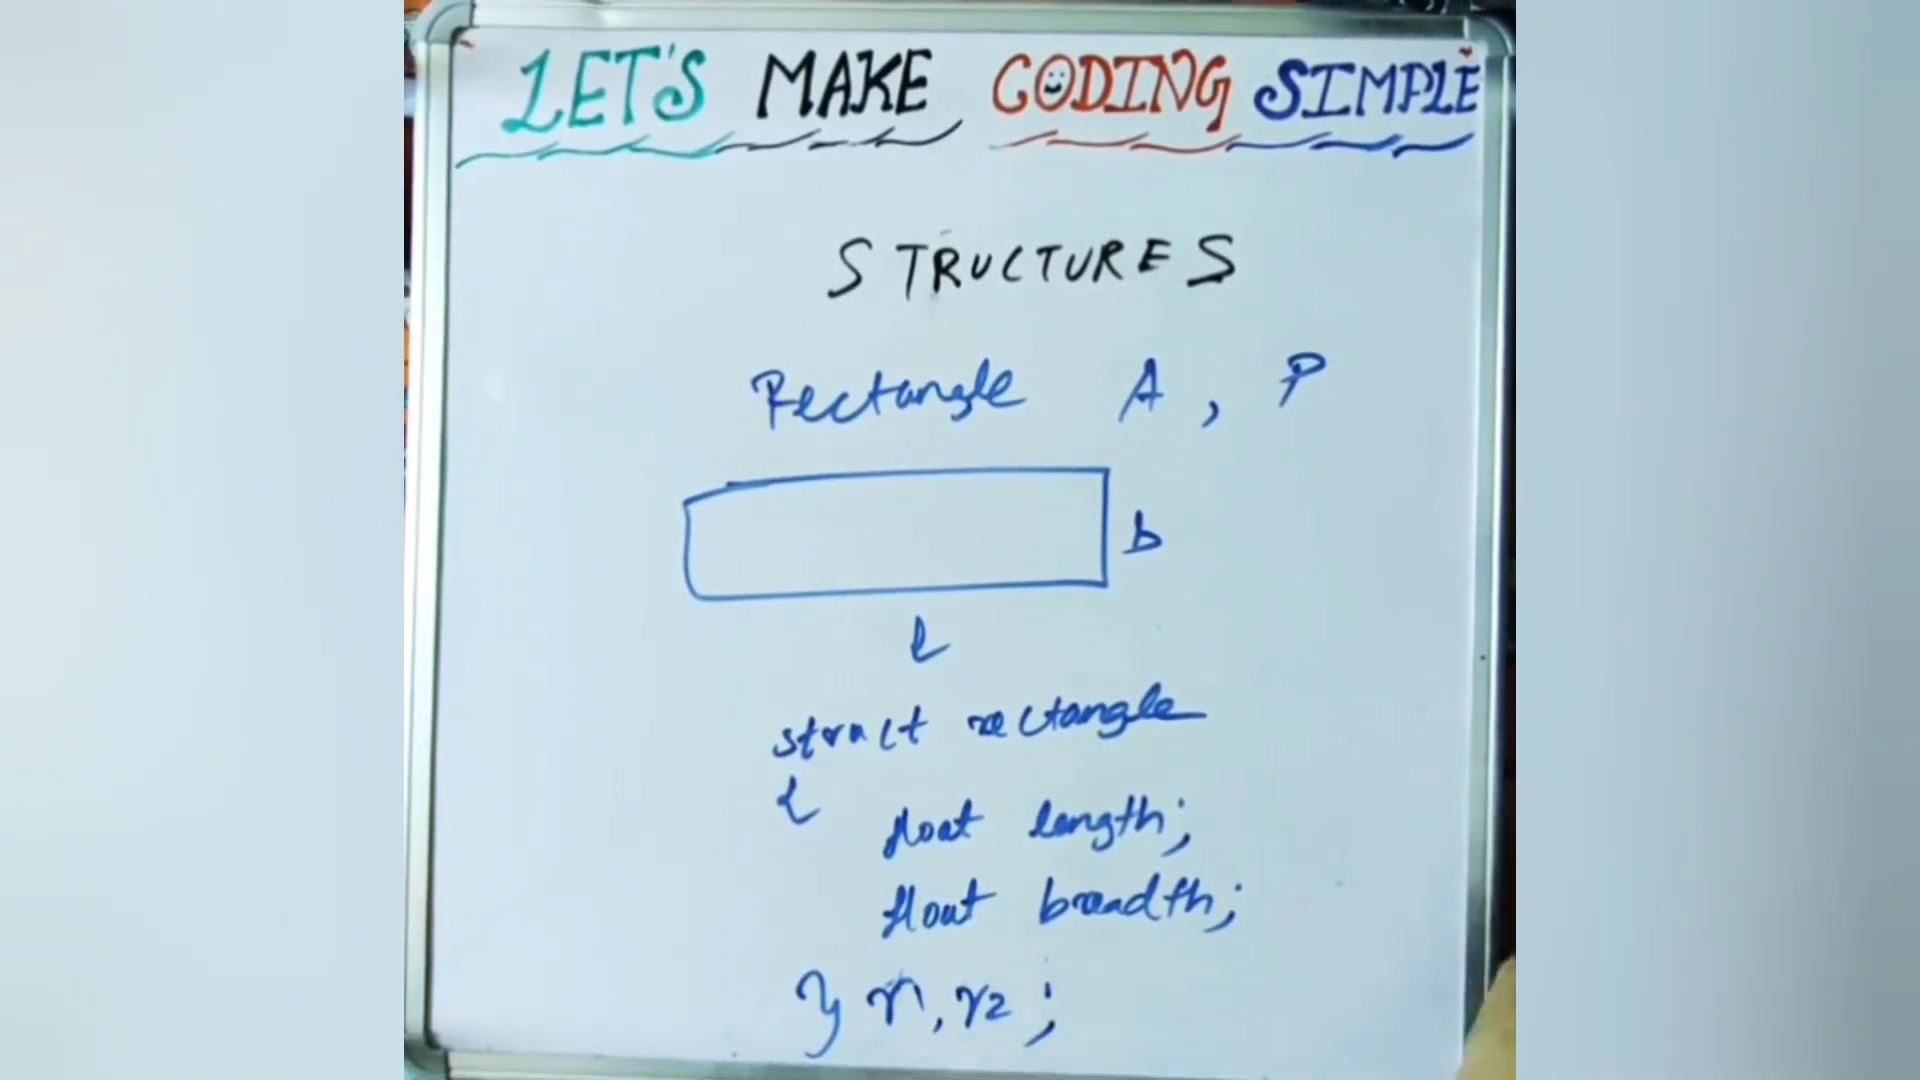 LET'S MAKE CODING SIMPLE
STRUCTURES
Rectangle A, P
b
l
struct rectangle
{
float length;
float breadth;
} r1, r2;